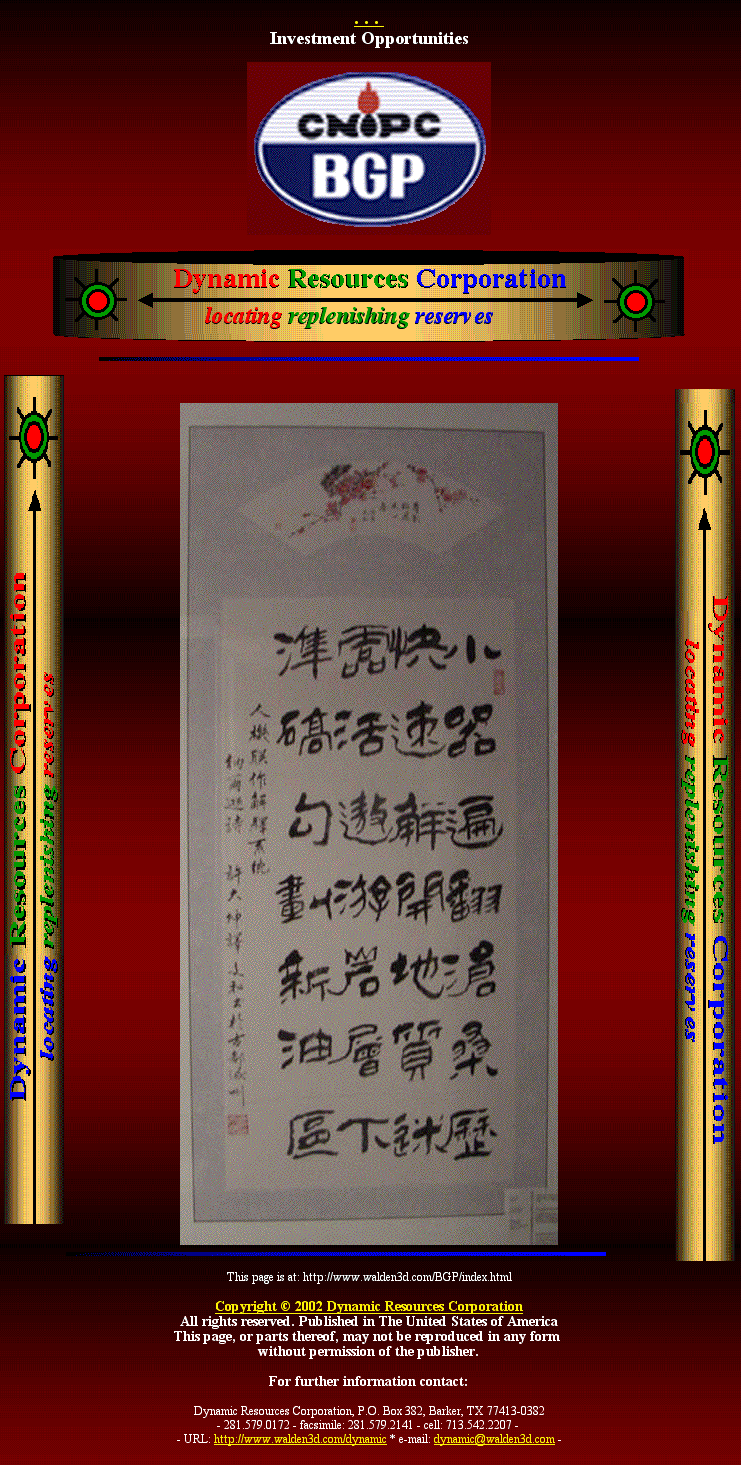 . . .
Investment Opportunities
CNPC
BGP
Dynamic Resources Corporation
locating replenishing reserves
Dynamic Resources Corporation
locating replenishing reserves
小器遍翻滄桑歷
快速解開地質謎
靈活遨游岩層下
準碻勾劃新油區
人機聯作解釋系統
Dynamic Resources Corporation
locating replenishing reserves
This page is at: http://www.walden3d.com/BGP/index.html
Copyright © 2002 Dynamic Resources Corporation
All rights reserved. Published in The United States of America
This page, or parts thereof, may not be reproduced in any form
without permission of the publisher.
For further information contact:
Dynamic Resources Corporation, P.O. Box 382, Barker, TX 77413-0382
- 281.579.0172 - facsimile: 281.579.2141 - cell: 713.542.2207 -
- URL: http://www.walden3d.com/dynamic * e-mail: dynamic@walden3d.com -